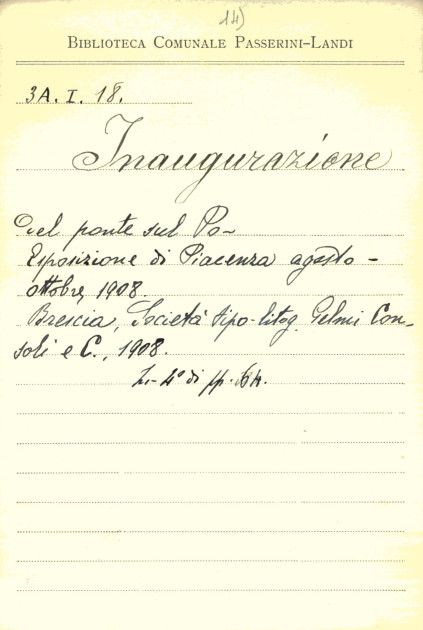 14)
BIBLIOTECA COMUNALE PASSERINI-LANDI
3A. I. 18.
Inaugurazione
del ponte sul Po-
Esposizione di Piacenza agosto -
ottobre, 1908.
Brescia, Società tipo-litog. Gelmi Con-
soli e C., 1908.
In-4° di pp. 64.